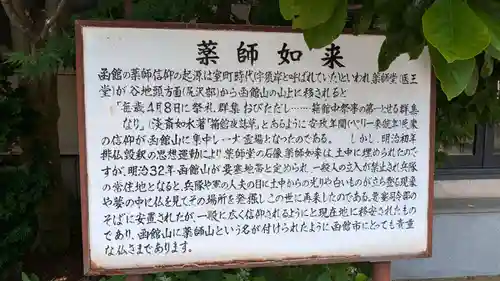 薬師如来
函館の薬師信仰の起源は室町時代(宇須岸と呼ばれていた)といわれ 薬師堂(医王
堂)が 谷地頭方面(尻沢部)から函館山の山上に移されると
「毎歳4月8日に祭礼、群集 おびただし……箱館中祭事の第一とせる群集
なり」(淡斎如水著「箱館夜話草」とあるように 安政年間(ペリー来航年)将来
の信仰が 函館山に集中し一大霊場となったのである。 しかし、明治初年
排仏毀釈の思想運動により薬師堂の石像薬師如来は、土中に埋められたので
すが、明治32年 函館山が 要塞地帯と定められ、一般人の立入が禁止され兵隊
の常住地となると、兵隊や軍の人夫の目に土中からの光りや白いものが立ち登る現象
や夢の中に仏を見てその場所を発掘しこの世に再来したのである。要塞司令部の
そばに安置されたが、一般に広く信仰されるようにと現在地に移安されたもの
であり、函館山に薬師山という名が付けられたように函館市にとっても貴重
な仏さまであります。